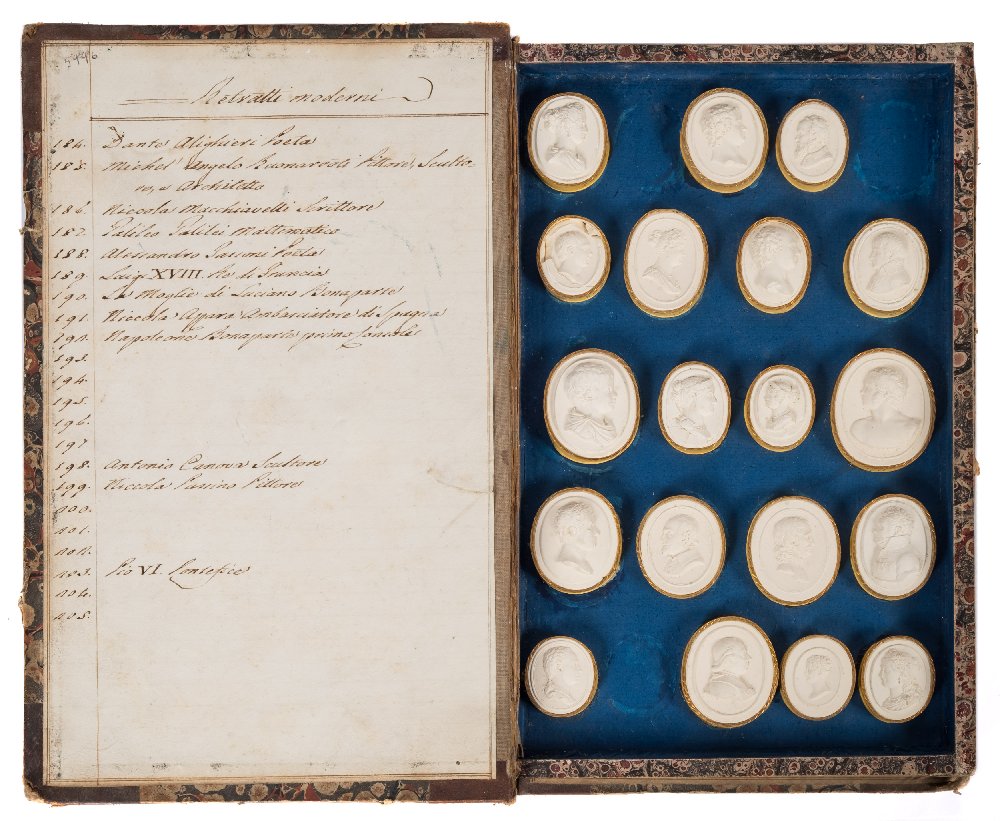 5446
Retratti moderni
184. Dante Alighieri Poeta
185. Michel' Angelo Buonarroti Pittore, Sculto-
re, e Architetto
186. Niccola Macchiavelli Scrittore
187. Galileo Galilei Mattematico
188. Alessandro Tassoni Poeta
189. Luigi XVIII. Re di Francia
190. La Moglie di Luciano Bonaparte
191. Niccola Azara Ambasciatore di Spagna
192. Napoleone Bonaparte primo Console
193.
194.
195.
196.
197
198. Antonio Canova Scultore
199. Niccola Pussino Pittore
200.
201.
202.
203. Pio VI. Pontefice
204.
205.